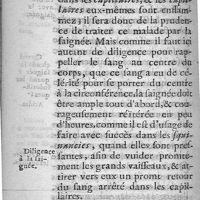 dans les capillaires, & les capil-
laires eux-mêmes sont enflam-
mez; il sera donc de la pruden-
ce de traiter ce malade par la
saignée. Mais comme il faut ici
autant de diligence pour rap-
peller le sang au centre du
corps, que ce sang a eu de cé-
lérité pour se porter du centre
à la circonférence, la saignée doit
être ample tout d'abord, & cou-
rageusement réïterée en peu
d'heures, comme il est d'usage de
faire avec succès dans les squi-
nancies, quand elles sont pres-
santes, afin de vuider promte-
ment les grands vaisseaux, & at-
tirer vers eux un promt retour
du sang arrêté dans les capil-
laires.
Diligence
à la sai-
gnée.